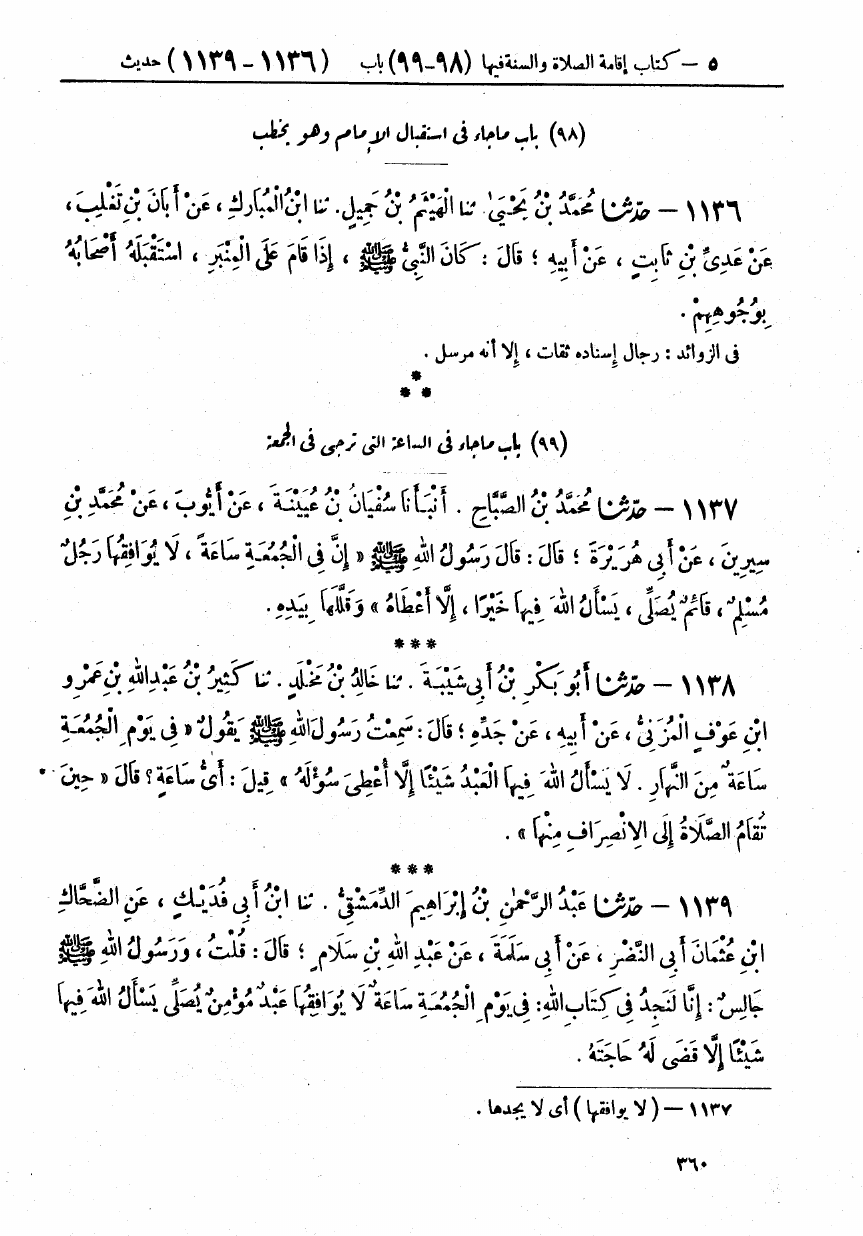 ٥ – كتاب إقامة الصلاة والسنة فيها (٩٨-٩٩) باب (١١٣٦ - ١١٣٩) حديث
(٩٨) باب ماجاء فى استقبال الإمام وهو يخطب
١١٣٦ – حدّثنا مُحَمَّدُ بْنُ يَحْيَىٰ. ثنا الْهَيْثَمُ بْنُ جَمِيلٍ. ثنا ابْنُ الْمُبَارَكِ، عَنْ أَبَانَ بْنِ تَغْلِبَ،
عَنْ عَدِىِّ بْنِ ثَابِتٍ، عَنْ أَبِيهِ؛ قَالَ: كَانَ النَّبِىُّ ﷺ، إِذَا قَامَ عَلَى الْمِنْبَرِ، اسْتَقْبَلَهُ أَصْحَابُهُ
بِوُجُوهِهِمْ.
فى الزوائد: رجال إسناده ثقات، إلا أنه مرسل.
*
* *
(٩٩) باب ماجاء فى الساعة التى ترجى فى الجمعة
١١٣٧ – حدّثنا مُحَمَّدُ بْنُ الصَّبَّاحِ. أَنْبَأَنَا سُفْيَانُ بْنُ عُيَيْنَةَ، عَنْ أَيُّوبَ، عَنْ مُحَمَّدِ بْنِ
سِيرِينَ، عَنْ أَبِى هُرَيْرَةَ؛ قَالَ: قَالَ رَسُولُ اللهِ ﷺ «إِنَّ فِى الْجُمُعَةِ سَاعَةً، لَا يُوَافِقُهَا رَجُلٌ
مُسْلِمٌ، قَائِمٌ يُصَلِّى، يَسْأَلُ اللهَ فِيهَا خَيْرًا، إِلَّا أَعْطَاهُ» وَقَلَّلَهَا بِيَدِهِ.
***
١١٣٨ – حدّثنا أَبُو بَكْرِ بْنُ أَبِى شَيْبَةَ. ثنا خَالِدُ بْنُ مَخْلَدٍ. ثنا كَثِيرُ بْنُ عَبْدِ اللهِ بْنِ عَمْرِو
ابْنِ عَوْفٍ الْمُزَنِىُّ، عَنْ أَبِيهِ، عَنْ جَدِّهِ؛ قَالَ: سَمِعْتُ رَسُولَ اللهِ ﷺ يَقُولُ «فِى يَوْمِ الْجُمُعَةِ
سَاعَةٌ مِنَ النَّهَارِ. لَا يَسْأَلُ اللهَ فِيهَا الْعَبْدُ شَيْئًا إِلَّا أُعْطِىَ سُؤْلَهُ» قِيلَ: أَىُّ سَاعَةٍ؟ قَالَ «حِينَ
تُقَامُ الصَّلَاةُ إِلَى الِانْصِرَافِ مِنْهَا».
***
١١٣٩ – حدّثنا عَبْدُ الرَّحْمٰنِ بْنُ إِبْرَاهِيمَ الدِّمَشْقِىُّ. ثنا ابْنُ أَبِى فُدَيْكٍ، عَنِ الضَّحَّاكِ
ابْنِ عُثْمَانَ أَبِى النَّضْرِ، عَنْ أَبِى سَلَمَةَ، عَنْ عَبْدِ اللهِ بْنِ سَلَامٍ؛ قَالَ: قُلْتُ، وَرَسُولُ اللهِ ﷺ
جَالِسٌ: إِنَّا لَنَجِدُ فِى كِتَابِ اللهِ: فِى يَوْمِ الْجُمُعَةِ سَاعَةٌ لَا يُوَافِقُهَا عَبْدٌ مُؤْمِنٌ يُصَلِّى يَسْأَلُ اللهَ فِيهَا
شَيْئًا إِلَّا قَضَى لَهُ حَاجَتَهُ.
١١٣٧ – (لا يوافقها) أى لا يجدها.
٣٦٠